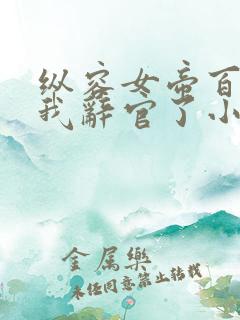 纵容女帝百
我辞官了小
金属乐
未经同意禁止转载